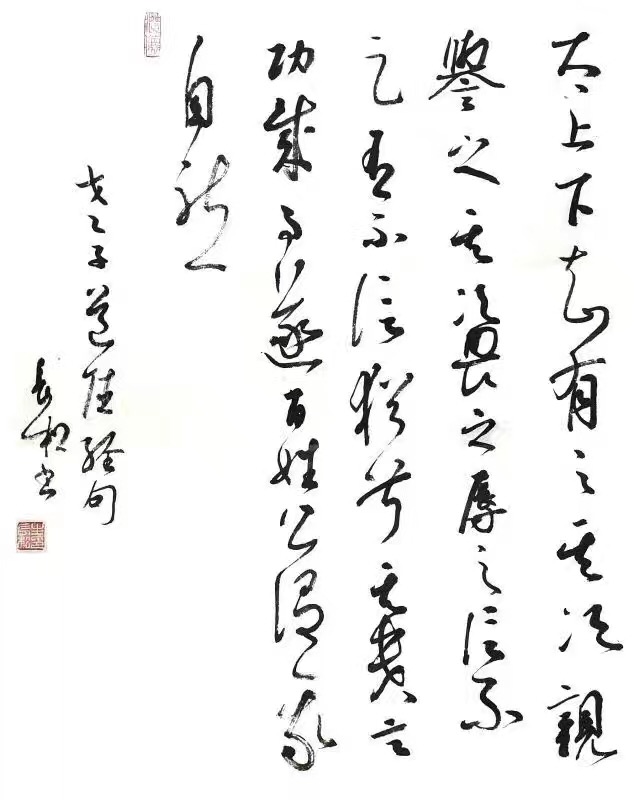 太上下知有之其次親
譽之其次畏之辱之信不
足有不信猶兮其貴言
功成事遂百姓皆謂我
自然
老子道德經句
長書